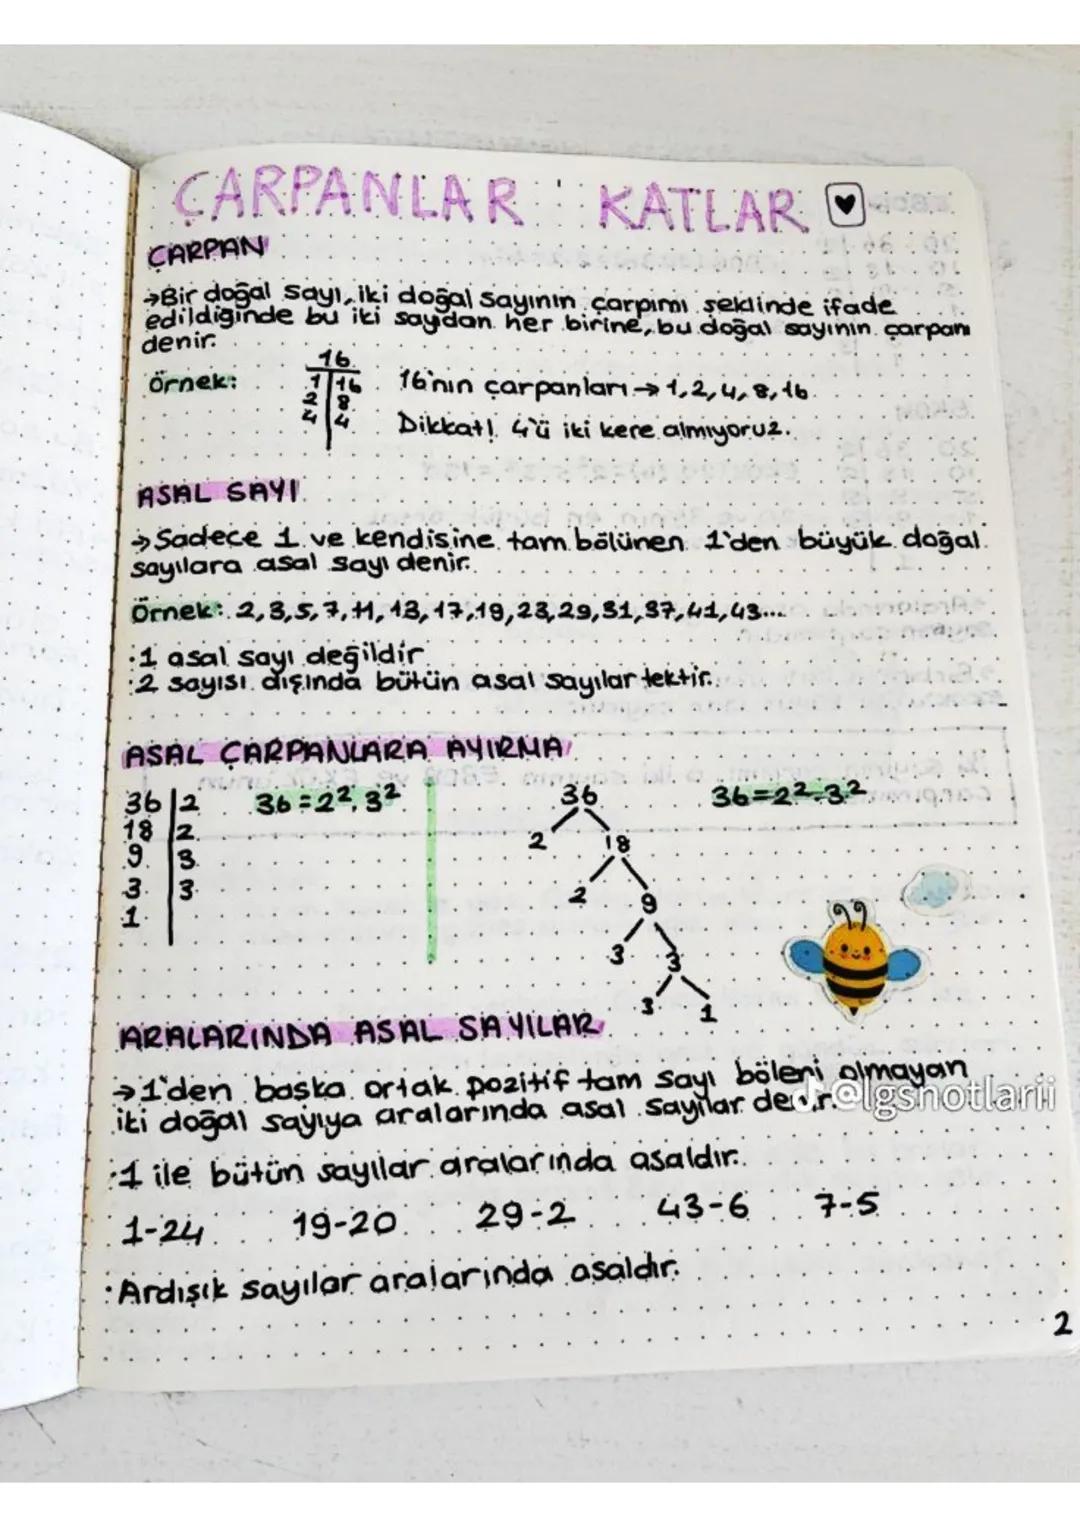 ÇARPANLAR KATLAR
ÇARPAN
→Bir doğal sayı, iki doğal sayının çarpımı şeklinde ifade
edildiğinde bu iki sayıdan her birine, bu doğal sayının çarpanı
denir.
Örnek:
16
1 16
2 8
4 4
16'nın çarpanları → 1, 2, 4, 8, 16
Dikkat! 4'ü iki kere almıyoruz.
ASAL SAYI
→Sadece 1 ve kendisine tam bölünen 1'den büyük doğal
sayılara asal sayı denir.
Örnek: 2, 3, 5, 7, 11, 13, 17, 19, 23, 29, 31, 37, 41, 43...
·1 asal sayı değildir.
·2 sayısı dışında bütün asal sayılar tektir.
ASAL ÇARPANLARA AYIRMA
36 2
18 2
9 3
3 3
1
36=2².3²
36
2 18
2 9
3 3
3 1
36=2².3²
ARALARINDA ASAL SAYILAR
→1'den başka ortak pozitif tam sayı böleni olmayan
iki doğal sayıya aralarında asal sayılar denir.
@lgsnotlarii
·1 ile bütün sayılar aralarında asaldır.
1-24 19-20 29-2 43-6 7-5
·Ardışık sayılar aralarında asaldır.
2